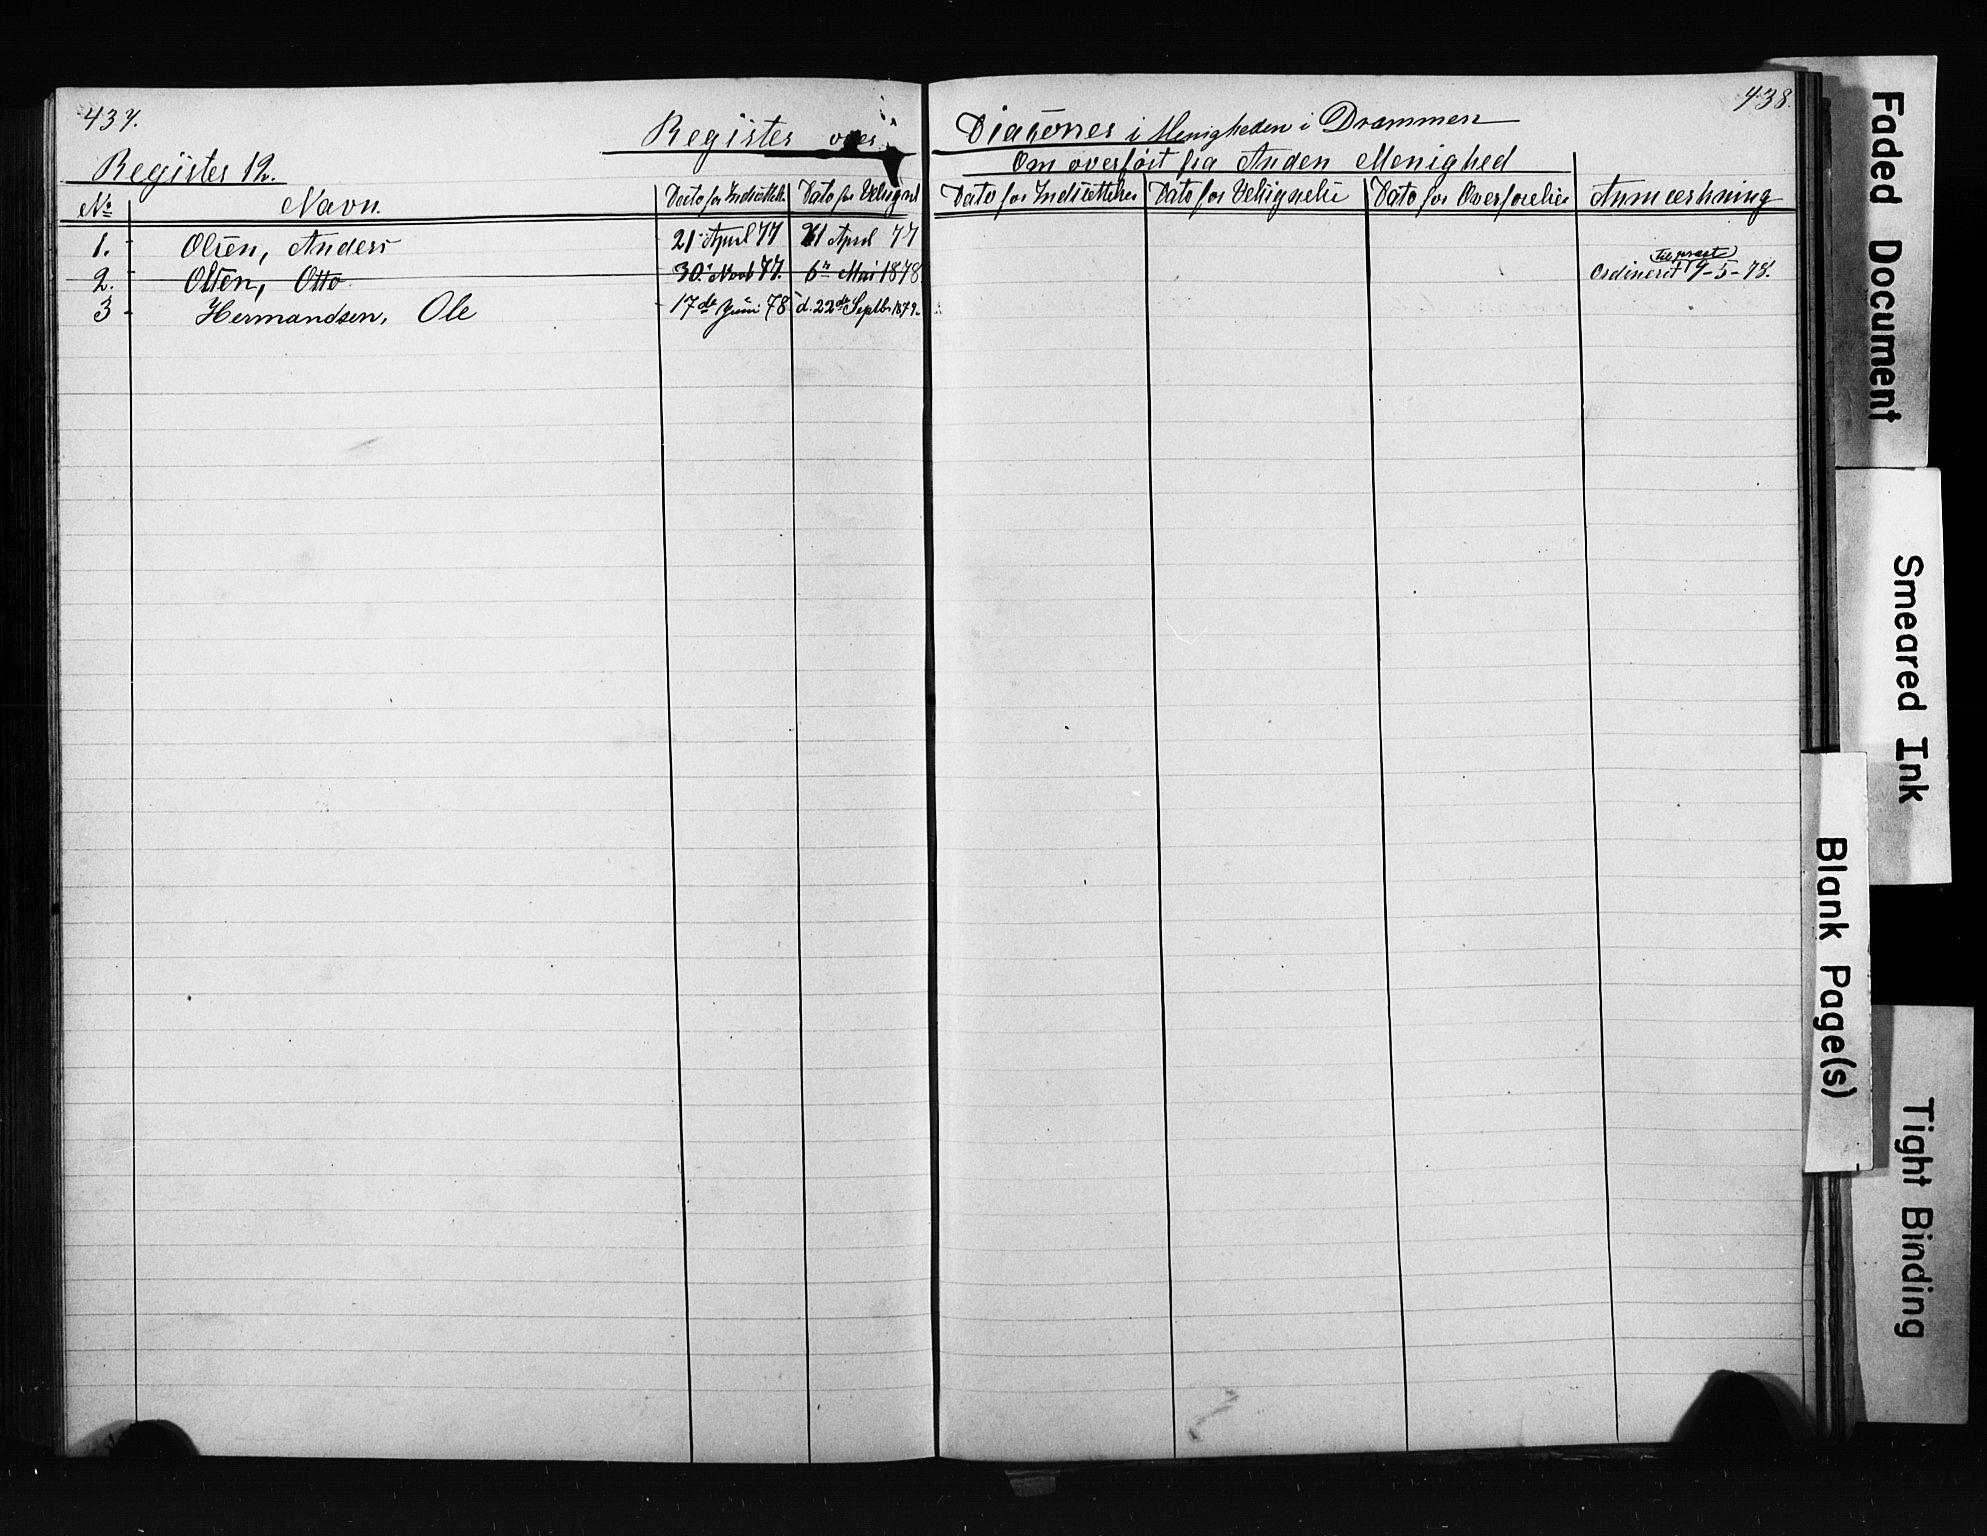 437.
438.
Register over Diaconer i Menigheden i Drammen
Register 12.
Om overført fra Anden Menighed
No Navn. Dato for Indsættelse Dato for Velsignel Dato for Indsættelse Dato for Velsignelse Dato for Overførelse Anmærkning
1. Olsen, Anders 21 April 77 21 April 77
2. Olsen, Otto 30 Novb 77. 6te Mai 1878 Ordineret Til præst 19-5-78.
3 Hermandsen, Ole 17de Juni 78 d. 22de Septbr 1879.
Faded Document
Smeared Ink
Blank Page(s)
Tight Binding